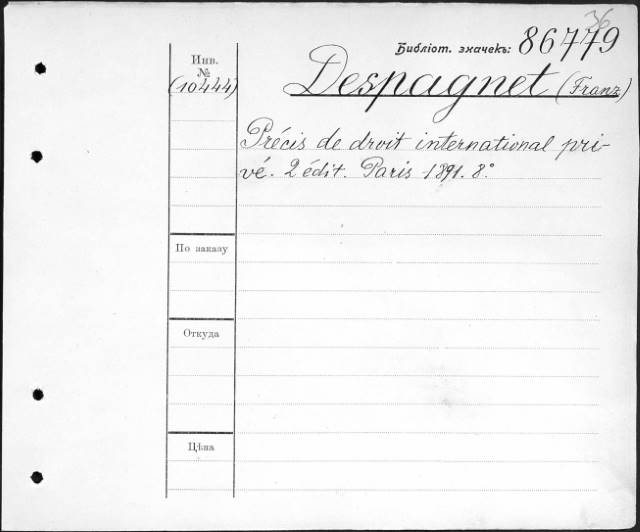 36
Библіот. значекъ: 86779
Инв. №
(10444)
Despagnet (Franz)
Précis de droit international pri-
vé. 2 édit. Paris 1891. 8°
По заказу
Откуда
Цѣна